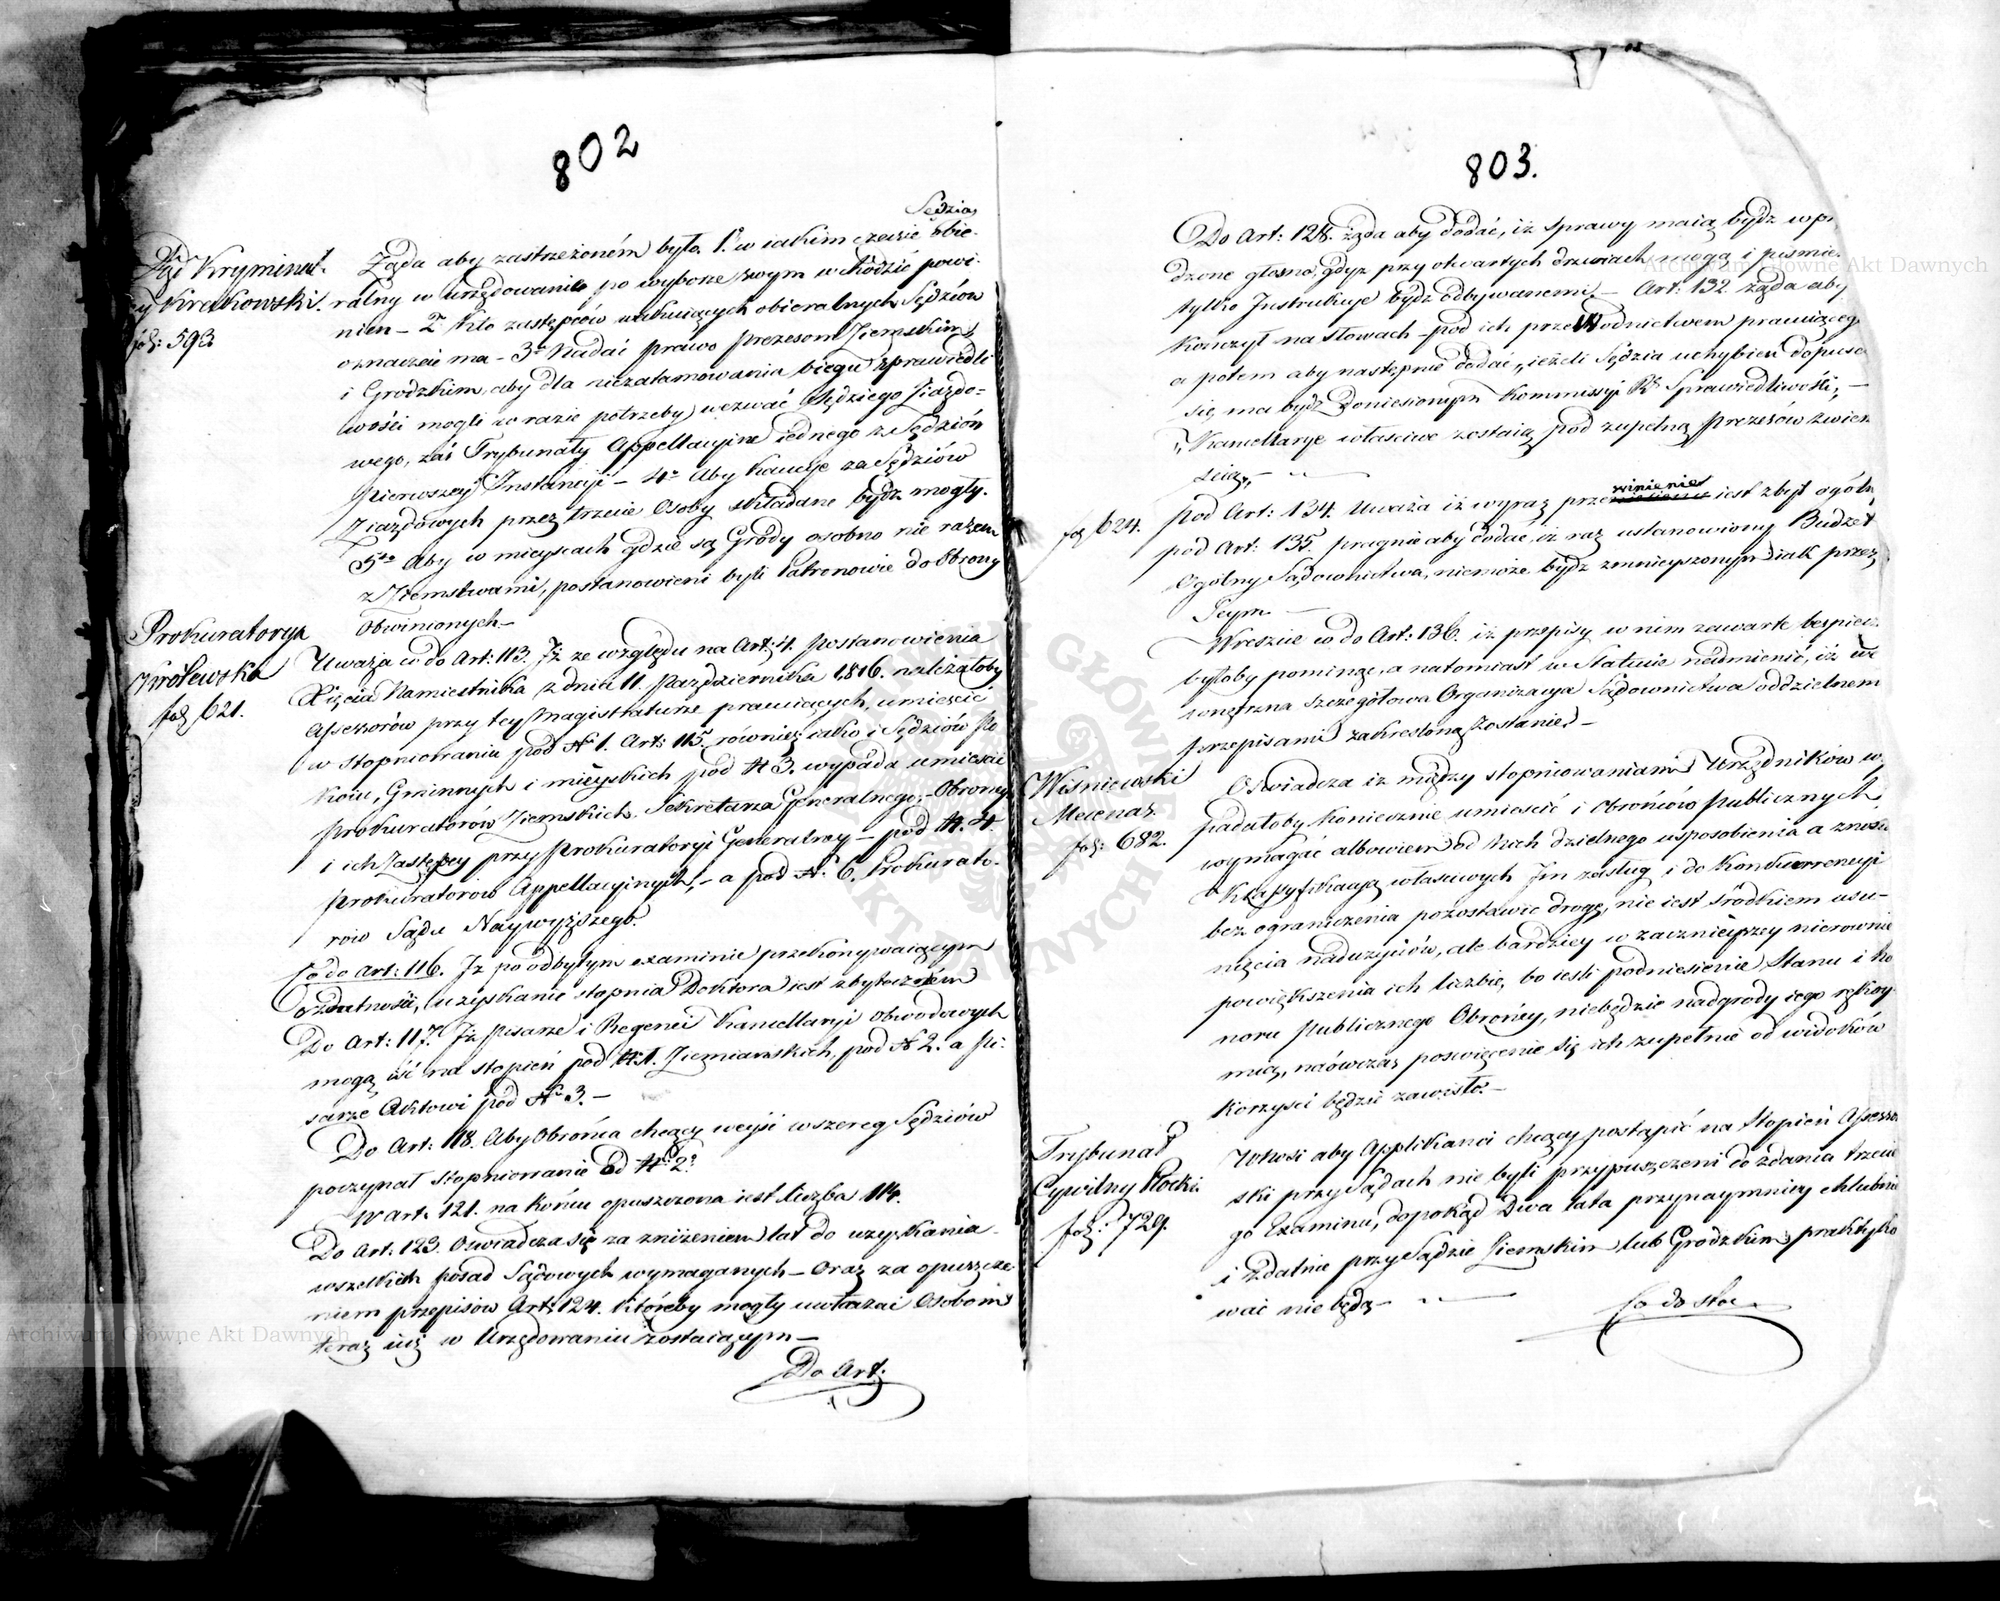 802
Sąd Kryminal:
ny Krakowski.
fol: 593
Żąda aby zastrzeżoném było. 1º w iakim czasie obie-
Sędzia
ralny w urzędowanie po wyborze swym wchodzić powi-
nien – 2º Kto zastępców wakuiących obieralnych Sędziów
oznaczać ma – 3º Nadać prawo Prezesom Ziemskim
i Grodzkim, aby dla niezatamowania biegu sprawiedli
wości mogli w razie potrzeby wezwać Sędziego Ziazdo-
wego, zaś Trybunały Appellacyine iednego z Sędziów
Pierwszey Instancyi – 4º Aby Kaucye za Sędziów
Ziazdowych przez trzecie Osoby składane bydź mogły.
5to Aby w mieyscach gdzie są Grody osobno nie razem
z Ziemstwami, postanowieni byli Patronowie do Obrony
Obwinionych. –
Prokuratorya
Królewska
fol 621.
Uważa co do Art: 113. Iż ze względu na Art: 4. Postanowienia
Xięcia Namiestnika z dnia 11. Października 1816. należałoby
Assessorów przy tey Magistraturze pracuiących, umieścić
w stopniowaniu pod N 1. Art: 115. również iako i Sędziów Po
koiu, Gminnych i mieyskich pod N 3. wypada umieścić
Prokuratorów Ziemskich. Sekretarza Generalnego, – Obrony
i ich Zastępcy przy Prokuratoryi Generalney – pod N. 4.
Prokuratorów Appellacyinych, – a pod N. 6. Prokurato-
rów Sądu Naywyższego.
Co do Art: 116. Iż po odbytym examinie przekonywaiącym
o zdatności, uzyskanie stopnia Doktora iest zbyteczném
Do Art: 117. Iż Pisarze i Regenci Kancellaryi Obwodowych
mogą iść na stopień pod N 1. Ziemiańskich, pod N 2. a Pi-
sarze Aktowi pod N 3. –
Do Art: 118. Aby Obrońca chcący weyść w szereg Sędziów
poczynał stopniowanie od N 2º
W Art: 121. na końcu opuszczona iest liczba 114.
Do Art: 123. Oswiadcza się za zniżeniem lat do uzyskania
wszelkich posad Sądowych wymaganych – Oraz za opuszcze
niem przepisów Art: 124. któreby mogły uwłaczać Osobom
teraz iuż w Urzędowaniu zostaiącym –
Do Art:
803.
Do Art: 128. żąda aby dodać, iż Sprawy maią bydź
dzone głosno, gdyż przy otwartych drzwiach mogą i
tylko Instrukcye bydź odbywanemi. – Art: 132. żąda aby
kończył na słowach – pod ich przewodnictwem
a potem aby następnie dodać „ieżeli Sędzia uchybień
się ma bydź Doniesionym Kommissyi R. Sprawiedliwości, –
„Kancellarye właściwe zostaią pod zupełną Prezesów
scią, –
fol 624.
Pod Art: 134. Uważa iż wyraz przewinienie iest zbyt
pod Art: 135. pragnie aby dodać, iż raz ustanowiony Budżet
Ogólny Sądownictwa, niemoże bydź zmnieyszonym iak przez
Seym –
Wreszcie co do Art: 136. iż przepisy w nim zawarte
byłoby pominąć, a natomiast w Statucie nadmienić, iż
wnętrzna szczegółowa Organizacya Sądownictwa oddzielnemi
przepisami zakresloną zostanie. –
Wiśniewski
Mecenas.
fol: 682.
Oświadcza iż między stopniowaniami Urzędników
padałoby koniecznie umieścić i Obrońców Publicznych,
wymagać albowiem od Nich dzielnego usposobienia a
Klassyfikacyą właściwych Im zasług i do Konkurrencyi
bez ograniczenia pozostawić drogę, nie iest środkiem usu-
nięcia nadużyciów, ale bardziey w zaczniéyszey nierownie
powiększenia ich liczbie, bo iesli podniesienie Stanu i ho
noru Publicznego Obrońcy, niebędzie nadgrody iego rękoy-
mią, naówczas poswięcenie się ich zupełnie od widoków
korzyści będzie zawisło. –
Trybunał
Cywilny Płocki.
fol: 729.
Wnosi aby Applikanci chcący postąpić na Stopień Assesso
ski przy Sądach nie byli przypuszczeni do zdania trzecie
go Examinu, dopokąd Dwa lata przynaymniey chlubnie
i zdatnie przy Sądzie Ziemskim lub Grodzkim praktyko
wać nie będą –
Co do sło
Archiwum Główne Akt Dawnych
Archiwum Główne Akt Dawnych